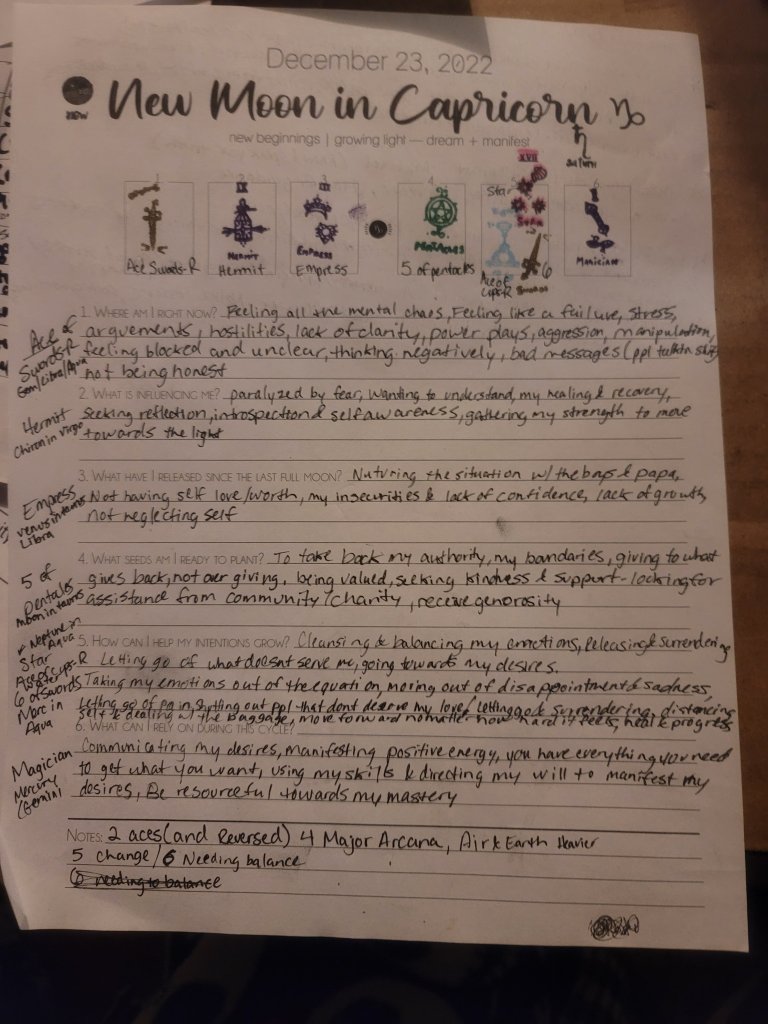 December 23, 2022
NEW
New Moon in Capricorn ♑
new beginnings | growing light — dream + manifest
♄
Saturn
1 2 3 4 6
IX III XVII
Star
HERMIT EMPRESS PENTACLES STAR Magician
Ace Swords-R Hermit Empress 5 of pentacles Ace of Cups-R 6 Swords
1. WHERE AM I RIGHT NOW? Feeling all the mental chaos, Feeling like a failure, stress,
arguements, hostilities, lack of clarity, power plays, aggression, manipulation,
feeling blocked and unclear, thinking negatively, bad messages (ppl talkin
not being honest
Ace of
Swords-R
Gem/Libra/Aqua
2. WHAT IS INFLUENCING ME? paralyzed by fear, wanting to understand, my healing & recovery,
seeking reflection, introspection & self awareness, gathering my strength to move
towards the light
Hermit
Chiron in Virgo
3. WHAT HAVE I RELEASED SINCE THE LAST FULL MOON? Nuturing the situation w/ the boys & papa,
Not having self love/worth, my insecurities & lack of confidence, lack of growth,
not neglecting self
Empress
venus in taurus
Libra
4. WHAT SEEDS AM I READY TO PLANT? To take back my authority, my bondaries, giving to what
gives back, not over giving, being valued, seeking kindness & support - looking for
assistance from community/charity, receive generosity
5 of
Pentacles
moon in taurus
5. HOW CAN I HELP MY INTENTIONS GROW? Cleansing & balancing my emotions, Releasing & surrendering
Letting go of what doesnt serve me, going towards my desires.
Taking my emotions out of the equation, moving out of disappointment & sadness,
Letting go of pain, Shutting out ppl that dont deserve my love/Letting go & surrendering, distancing
self & dealing w/ the baggage, move forward no matter how hard it feels, heal & progress
Neptune in
Star Aqua
Ace of Cups-R
6 of Swords
Merc in
Aqua
6. WHAT CAN I RELY ON DURING THIS CYCLE?
Communicating my desires, manifesting positive energy, you have everything you need
to get what you want, using my skills & directing my will to manifest my
desires, Be resourceful towards my mastery
Magician
Mercury
(Gemini)
NOTES: 2 aces (and Reversed) 4 Major Arcana, Air & Earth Heavier
5 change / 6 Needing balance
6 needing to balance